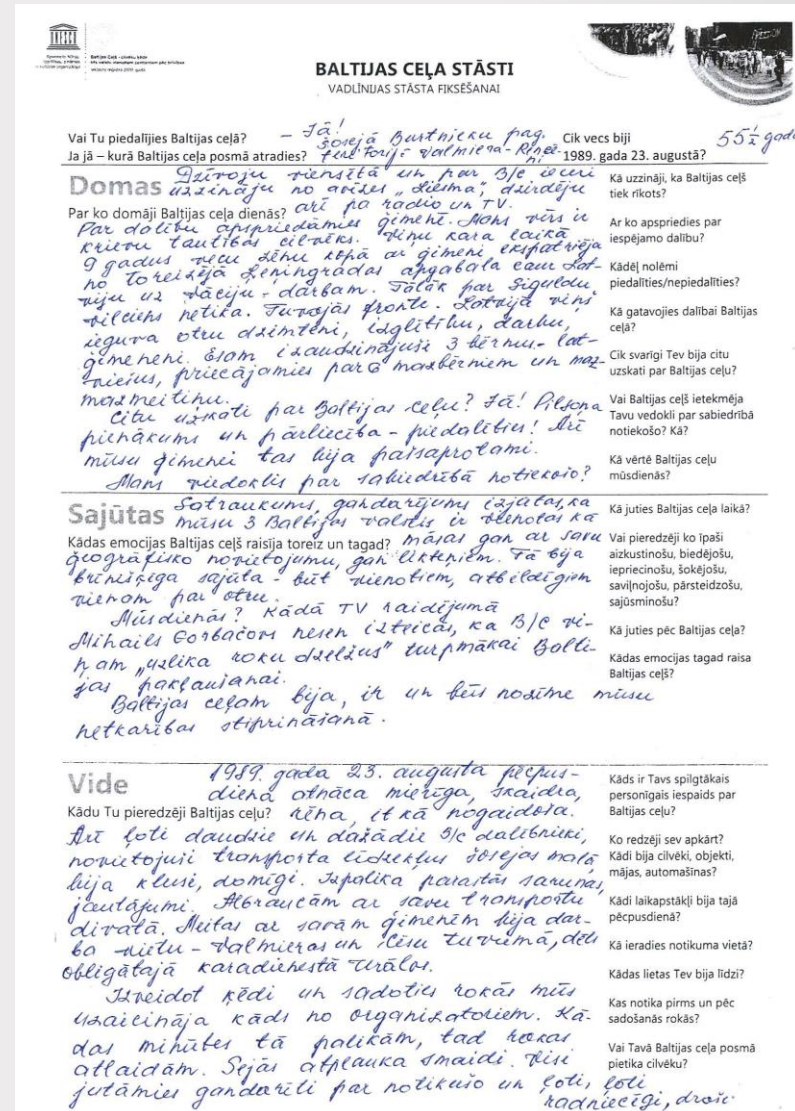 UNESCO
BALTIJAS CEĻA STĀSTI
VADLĪNIJAS STĀSTA FIKSĒŠANAI
Vai Tu piedalījies Baltijas ceļā? – Jā!
Ja jā – kurā Baltijas ceļa posmā atradies? šosejā Burtnieku pag. teritorijā Valmiera-
Cik vecs biji 55 1/2 gadi
1989. gada 23. augustā?
Domas
Dzīvoju viensētā un par B/c ieceri
uzzināju no avīzes „Liesma", dzirdēju
Par ko domāji Baltijas ceļa dienās? arī pa radio un TV.
Par dalību apspriedāmies ģimenē. Mans vīrs ir
krievu tautības cilvēks. Viņu kara laikā
9 gadus vecu zēnu kopā ar ģimeni ekspatriēja
no toreizējā Ļeņingradas apgabala caur Lat-
viju uz Vāciju - darbam. Tālāk par Siguldu
vilciens netika. Tuvojās fronte. Latvijā viņš
ieguva otru dzimteni, izglītību, darbu,
ģimeneni. Esam izaudzinājuši 3 bērnus - lat-
viešus, priecājamies par 6 mazbērniem un maz-
mazmeitiņu.
Citu uzskati par Baltijas ceļu? Jā! Pilsoņa
pienākums un pārliecība - piedalīties! Arī
mūsu ģimenei tas bija pašsaprotami.
Mans viedoklis par sabiedrībā notiekošo?
Kā uzzināji, ka Baltijas ceļš
tiek rīkots?
Ar ko apspriedies par
iespējamo dalību?
Kādēļ nolēmi
piedalīties/nepiedalīties?
Kā gatavojies dalībai Baltijas
ceļā?
Cik svarīgi Tev bija citu
uzskati par Baltijas ceļu?
Vai Baltijas ceļš ietekmēja
Tavu vedokli par sabiedrībā
notiekošo? Kā?
Kā vērtē Baltijas ceļu
mūsdienās?
Sajūtas
Satraukums, gandarījums izjūtas, ka
mūsu 3 Baltijas valstis ir vienotas kā
Kādas emocijas Baltijas ceļš raisīja toreiz un tagad? māsas gan ar savu
ģeogrāfisko novietojumu, gan likteņiem. Tā bija
brīnišķīga sajūta - būt vienotiem, atbildīgiem
vienam par otru.
Mūsdienās? Kādā TV raidījumā
Mihails Gorbačovs nesen izteicās, ka B/c vi-
ņam „uzlika roku dzelžus" turpmākai Balti-
jas pakļaušanai.
Baltijas ceļam bija, ir un būs nozīme mūsu
netkarības stiprināšanā.
Kā juties Baltijas ceļa laikā?
Vai pieredzēji ko īpaši
aizkustinošu, biedējošu,
iepriecinošu, šokējošu,
saviļņojošu, pārsteidzošu,
sajūsminošu?
Kā juties pēc Baltijas ceļa?
Kādas emocijas tagad raisa
Baltijas ceļš?
Vide
1989. gada 23. augusta pēcpus-
diena atnāca mierīga, skaidra,
Kādu Tu pieredzēji Baltijas ceļu? rēna, it kā nogaidoša.
Arī ļoti daudzie un dažādie B/c dalībnieki,
novietojuši transporta līdzekļus šosejas malā
bija klusi, domīgi. Izpalika parastās sarunas,
jautājumi. Atbraucām ar savu transportu
divatā. Meitas ar savām ģimenēm bija dar-
ba vietu - Valmieras un Cēsu tuvumā, dēls
obligātajā karadienestā Urālos.
Izveidot ķēdi un sadoties rokās mūs
uzaicināja kāds no organizatoriem. Kā-
das minūtes tā palikām, tad rokas
atlaidām. Sejās atplauka smaidi. Visi
jutāmies gandarīti par notikušo un ļoti, ļoti
radniecīgi, droši
Kāds ir Tavs spilgtākais
personīgais iespaids par
Baltijas ceļu?
Ko redzēji sev apkārt?
Kādi bija cilvēki, objekti,
mājas, automašīnas?
Kādi laikapstākļi bija tajā
pēcpusdienā?
Kā ieradies notikuma vietā?
Kādas lietas Tev bija līdzi?
Kas notika pirms un pēc
sadošanās rokās?
Vai Tavā Baltijas ceļa posmā
pietika cilvēku?